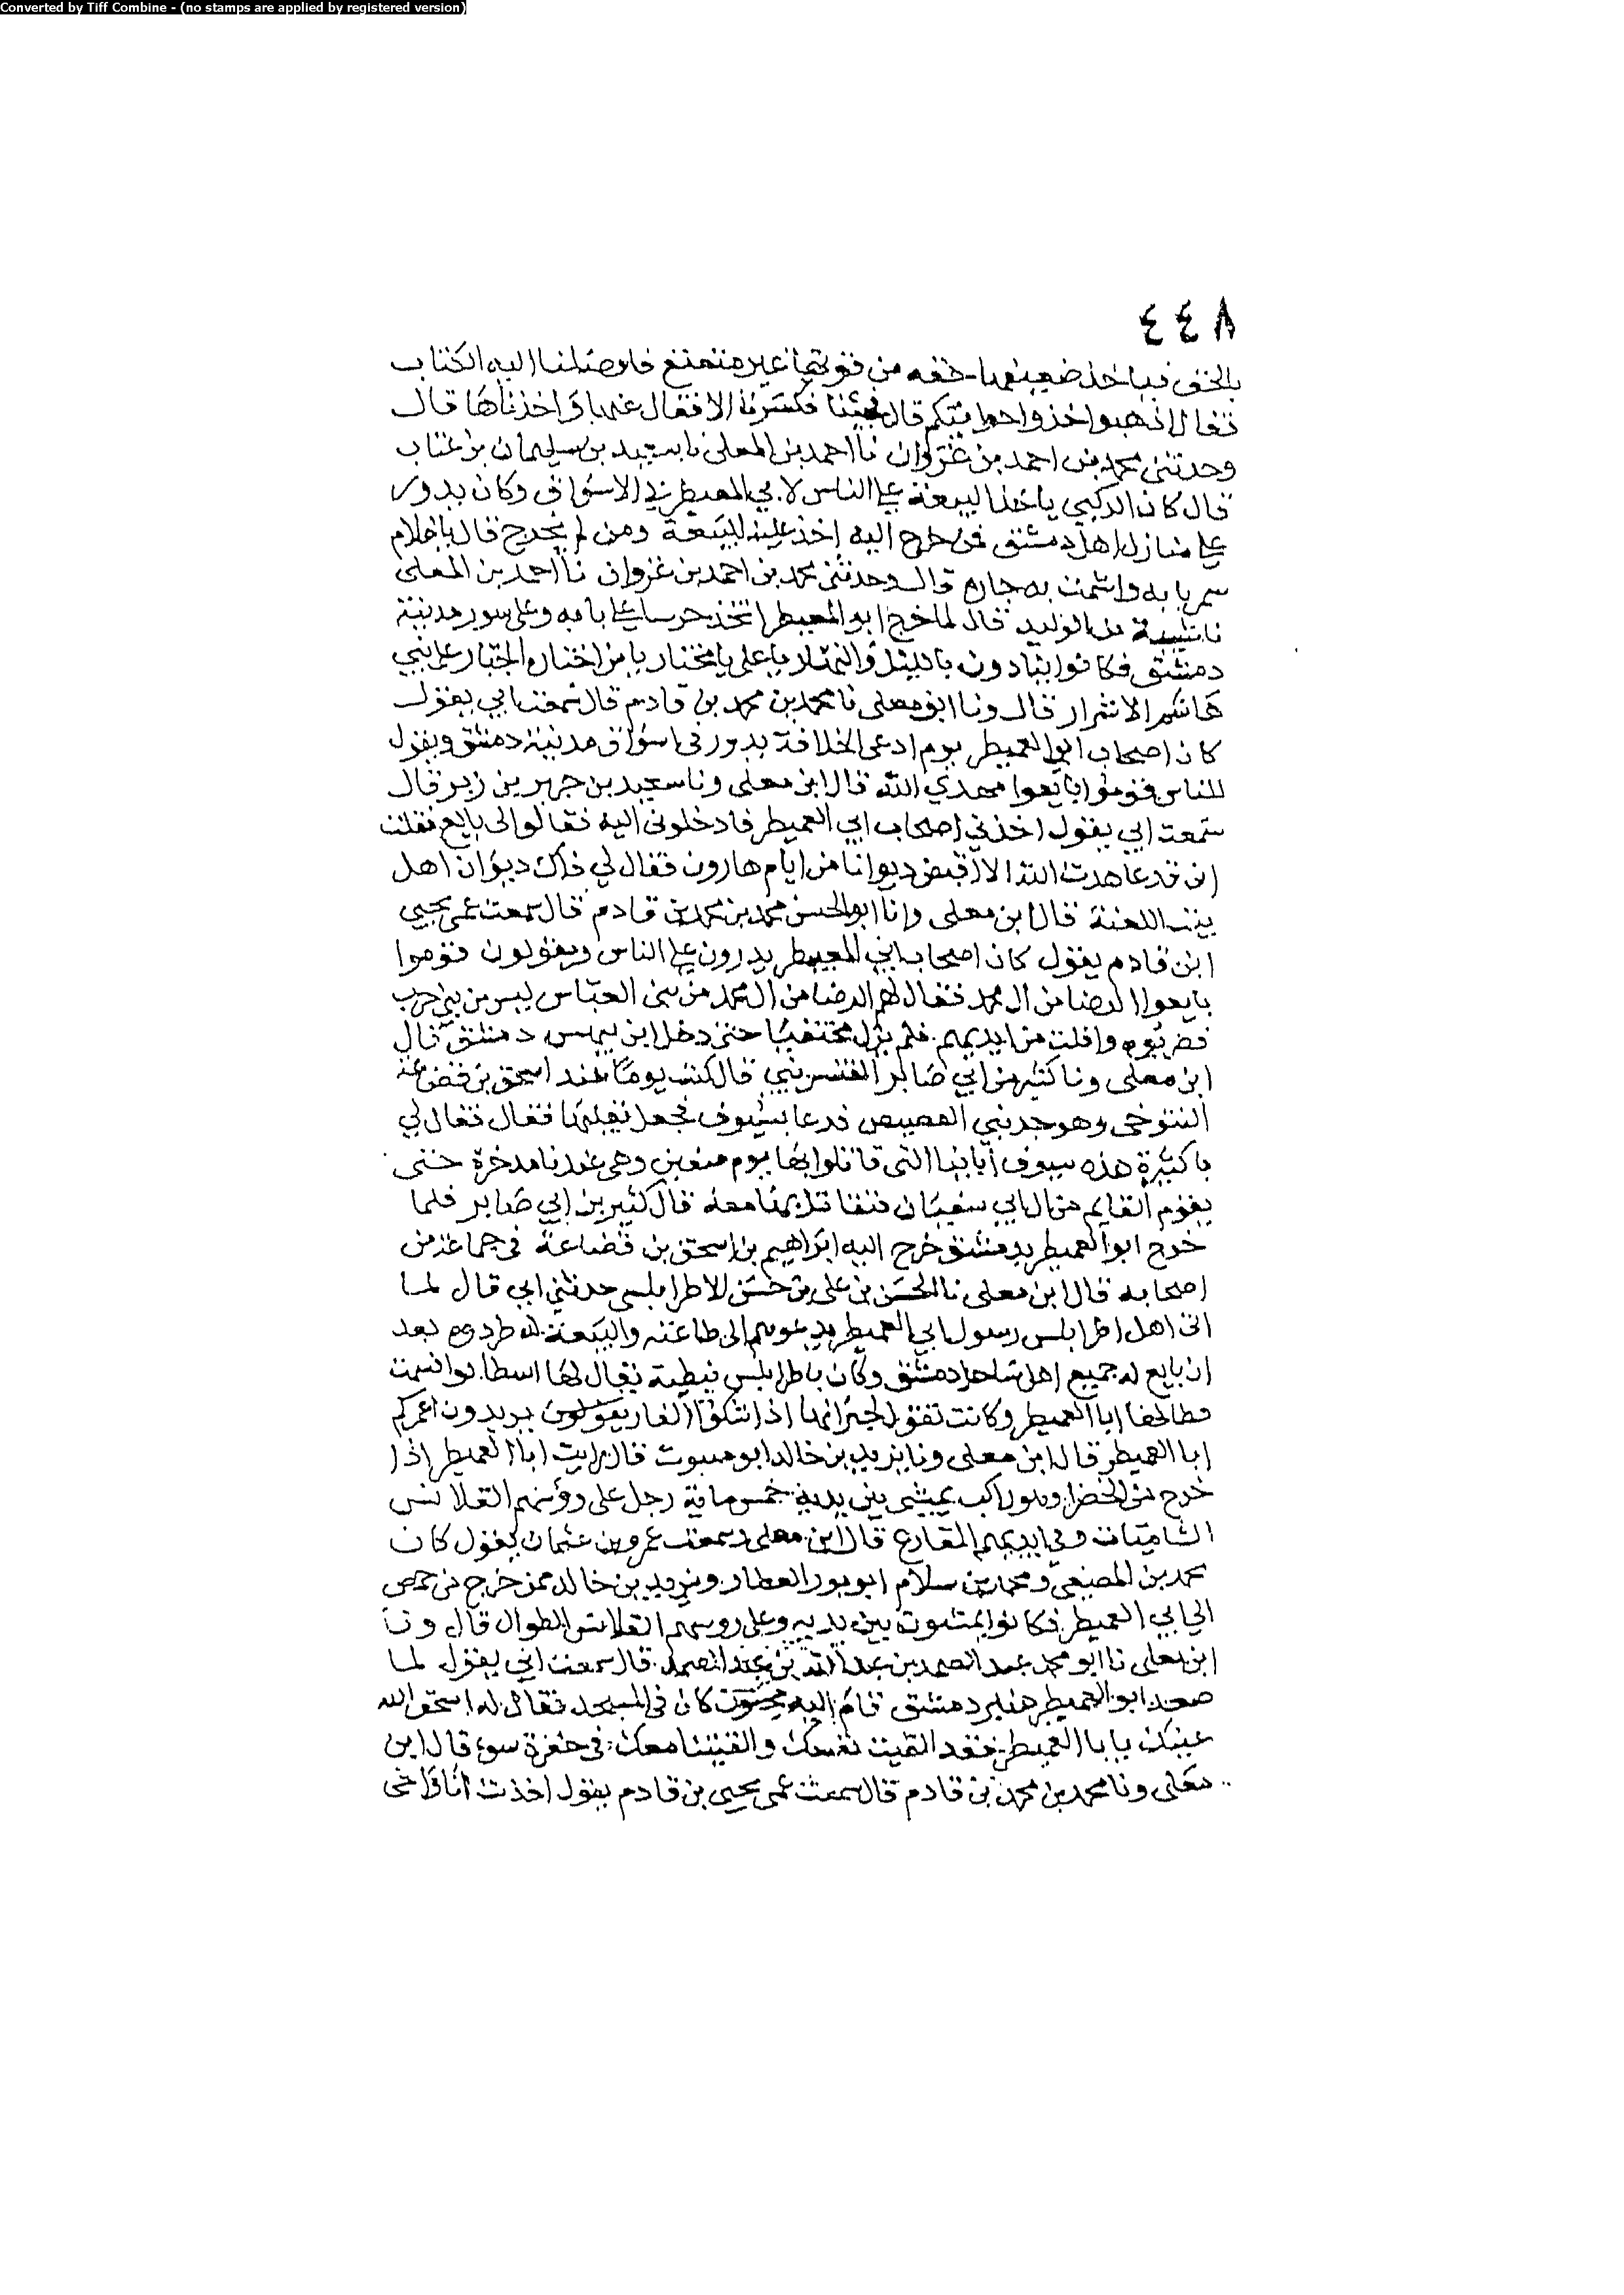 Converted by Tiff Combine - (no stamps are applied by registered version)
٤٤٨
بالحق فياخذ ضعيفها حقه من قويها غير متمتع فاوصلنا اليه الكتاب
فقال اذهبوا خذوا حوانيتكم قال فجئنا فكسرنا الاقفال عنها واخذناها قال
وحدثني محمد بن احمد بن غزوان نا احمد بن المعلى نا سعيد بن سليمان بن عتاب
قال كان الركبي ياخذ البيعة على الناس لابي العميطر في الاسواق وكان يدور
على منازل اهل دمشق فمن خرج اليه اخذ عليه البيعة ومن لم يخرج قال يا غلام
سمر بابه واشمت به جاره قال وحدثني محمد بن احمد بن غزوان نا احمد بن المعلى
نا شيبة بن الوليد قال لما خرج ابو العميطر اتخذ حرسا على بابه وعلى سور مدينة
دمشق فكانوا ينادون بالليل والنهار يا علي يا مختار يا من اختاره الجبار على بني
هاشم الاشرار قال ونا ابن معلى نا محمد بن محمد بن قادم قال سمعت ابي يقول
كان اصحاب ابي العميطر يوم ادعى الخلافة يدور في اسواق مدينة دمشق ويقول
للناس قوموا بايعوا مهدي الله قال ابن معلى ونا سعيد بن جرير بن زبر قال
سمعت ابي يقول اخذني اصحاب ابي العميطر فادخلوني اليه فقالوا لي بايع فقلت
اني قد عاهدت الله الا اقبض ديوانا من ايام هارون فقال لي ذاك ديوان اهل
بيت اللعنة قال ابن معلى وانا ابو الحسن محمد بن محمد بن قادم قال سمعت عمي يحيى
ابن قادم يقول كان اصحاب ابي العميطر يدرون على الناس ويقولون قوموا
بايعوا الرضا من ال محمد فقال لهم الرضا من ال محمد من بني العباس ليس من بني حرب
فضربوه وافلت من ايديهم فلم يزل مختفيا حتى دخل ابن بيهس دمشق قال
ابن معلى ونا كثير بن ابي صابر القنسريني قال كنت يوما عند اسحق بن قضاعة
التنوخي وهو جد بني الفصيص فدعا بسيوف فجعل يقلبها فقال فقال لي
يا كثير هذه سيوف آبائنا التي قاتلوا بها يوم صفين وهي عندنا مدخرة حتى
يقوم القايم من ال ابي سفيان فنقاتل بها معه قال كثير بن ابي صابر فلما
خرج ابو العميطر بدمشق خرج اليه ابراهيم بن اسحق بن قضاعة في جماعة من
اصحابه قال ابن معلى نا الحسن بن علي بن حسن الاطرابلسي حدثني ابي قال لما
اتى اهل اطرابلس رسول ابي العميطر يدعوهم الى طاعته والبيعة له طردوه بعد
ان بايع له جميع اهل ساحل دمشق وكان باطرابلس نبطية يقال لها اسطا
ابا العميطر وكانت تقول لجيرانها اذا الفار يقولون يريدون
ابا العميطر قال ابن معلى ونا يزيد بن خالد ابو قال رايت ابا العميطر اذا
خرج من الخضرا وهو راكب يمشي بين يديه خمس مائة رجل على رؤسهم القلانس
الشاميات وفي ايديهم المقارع قال ابن معلى وسمعت عمرو بن عثمان يقول كان
محمد بن المصفى ومحمد بن سلام العطار ويزيد بن خالد ممن خرج من حمص
الى ابي العميطر فكانوا يمشون بين يديه وعلى روسهم القلانس الطوال قال ونا
ابن معلى نا ابو محمد عبد الصمد بن عبد الله بن عبد الصمد قال سمعت ابي يقول لما
صعد ابو العميطر منبر دمشق قام اليه مجنون كان في المسجد فقال له اسخن الله
عينك يابا العميطر فقد القيت نفسك والقيتنا معك في حفرة سوء قال ابن
معلى ونا محمد بن محمد بن قادم قال سمعت عمي يحيى بن قادم يقول اخذت انا واخي